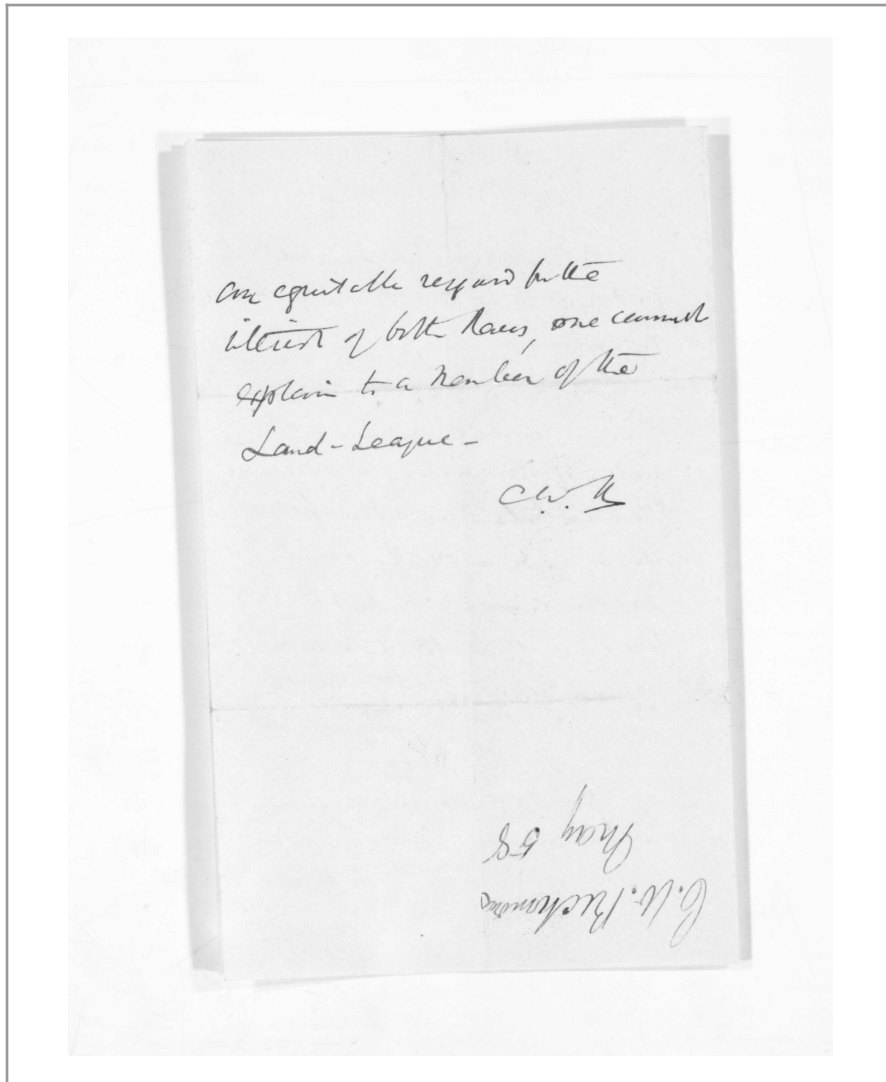 an equitable regard for the
interest of both Races, one cannot
explain to a Member of the
Land-League -
C.W.R
C.W. Richmond
May 58